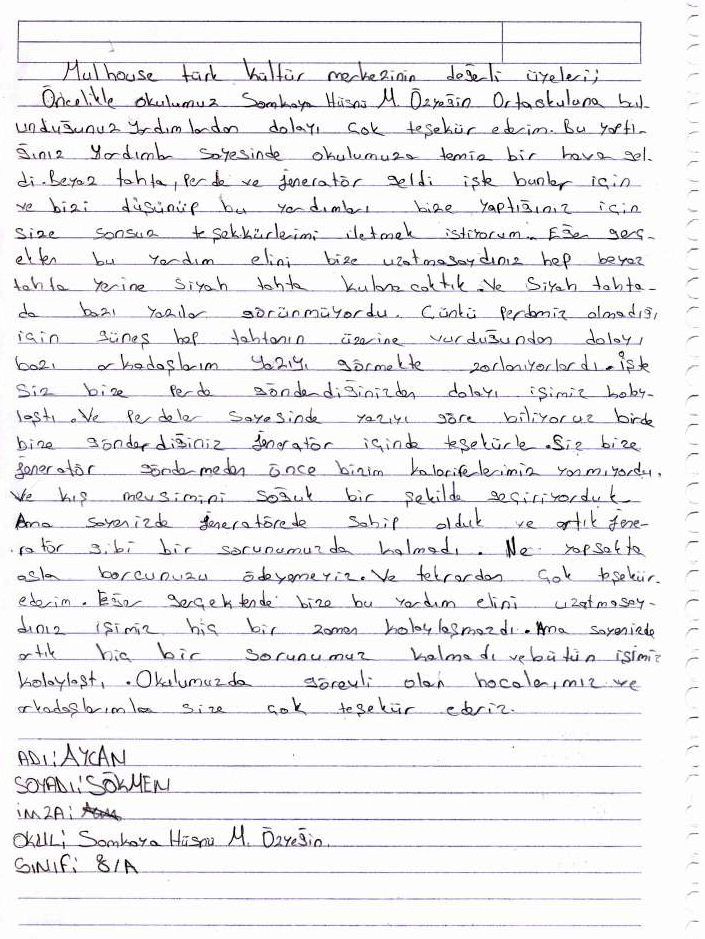 Mulhouse türk kültür merkezinin değerli üyeleri;
Öncelikle okulumuz Somkaya Hüsnü M. Özyeğin Ortaokuluna bul-
unduğunuz yardımlardan dolayı çok teşekür ederim. Bu yaptı-
ğınız yardımlar sayesinde okulumuza temiz bir hava gel-
di. Beyaz tahta, perde ve jeneratör geldi işte bunlar için
ve bizi düşünüp bu yardımları bize yaptığınız için
size sonsuz teşekkürlerimi iletmek istiyorum. Eğer gerç-
ekten bu yardım elini bize uzatmasaydınız hep beyaz
tahta yerine siyah tahta kulanacaktık. Ve siyah tahta-
da bazı yazılar görünmüyordu. Çünkü perdemiz olmadığı
için güneş hep tahtanın üzerine vurduğundan dolayı
bazı arkadaşlarım yazıyı görmekte zorlanıyorlardı. İşte
siz bize perde gönderdiğinizden dolayı işimiz kolay-
laştı. Ve perdeler sayesinde yazıyı göre biliyoruz birde
bize gönderdiğiniz jeneratör içinde teşekürle. Siz bize
jeneratör göndermeden önce bizim kaloriferlerimiz yanmıyordu.
Ve kış mevsimini soğuk bir şekilde geçiriyorduk
Ama sayenizde jeneratörede sahip olduk ve artık jene-
ratör gibi bir sorunumuzda kalmadı. Ne yapsakta
asla borcunuzu ödeyemeyiz. Ve tekrardan çok teşekür
ederim. Eğer gerçektende bize bu yardım elini uzatmasay-
dınız işimiz hiç bir zaman kolaylaşmazdı. Ama sayenizde
artık hiç bir sorunumuz kalmadı vebütün işimiz
kolaylaştı. Okulumuzda görevli olan hocalarımız ve
arkadaşlarımla size çok teşekür ederiz.
ADI: AYCAN
SOYADI: SÖKMEN
İMZA:
OKULU: Somkaya Hüsnü M. Özyeğin.
SINIFI: 8/A